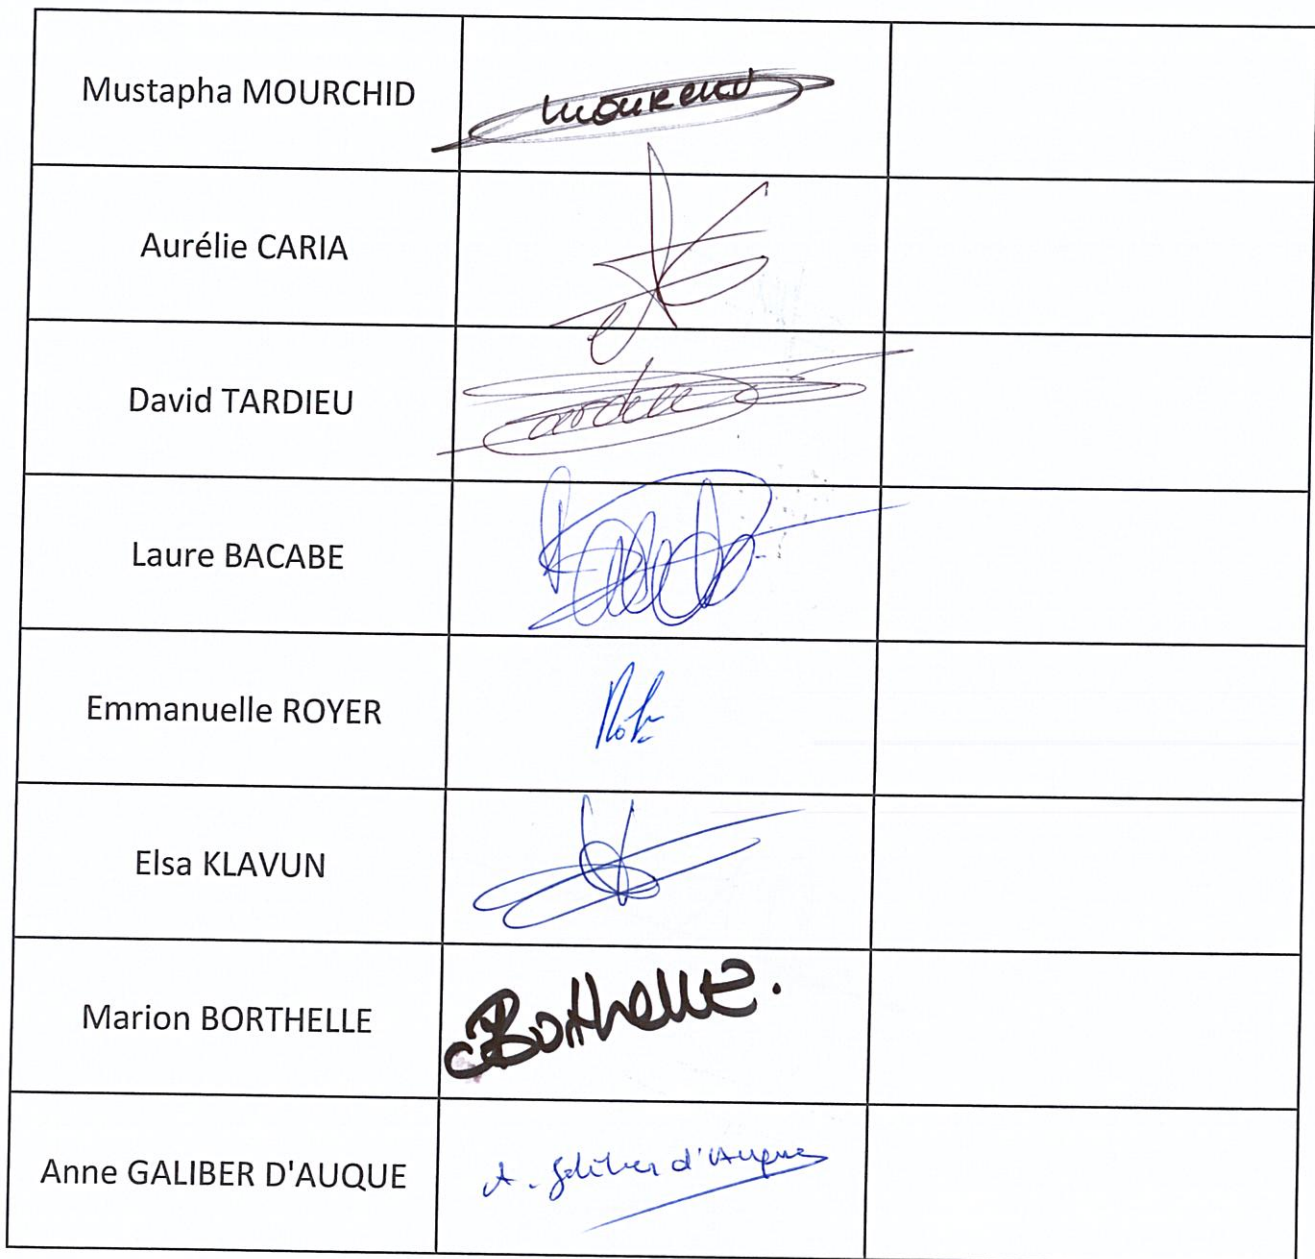 Mustapha MOURCHID
Aurélie CARIA
David TARDIEU
Laure BACABE
Emmanuelle ROYER
Elsa KLAVUN
Marion BORTHELLE Borthelle.
Anne GALIBER D'AUQUE A. Galiber d'Auque